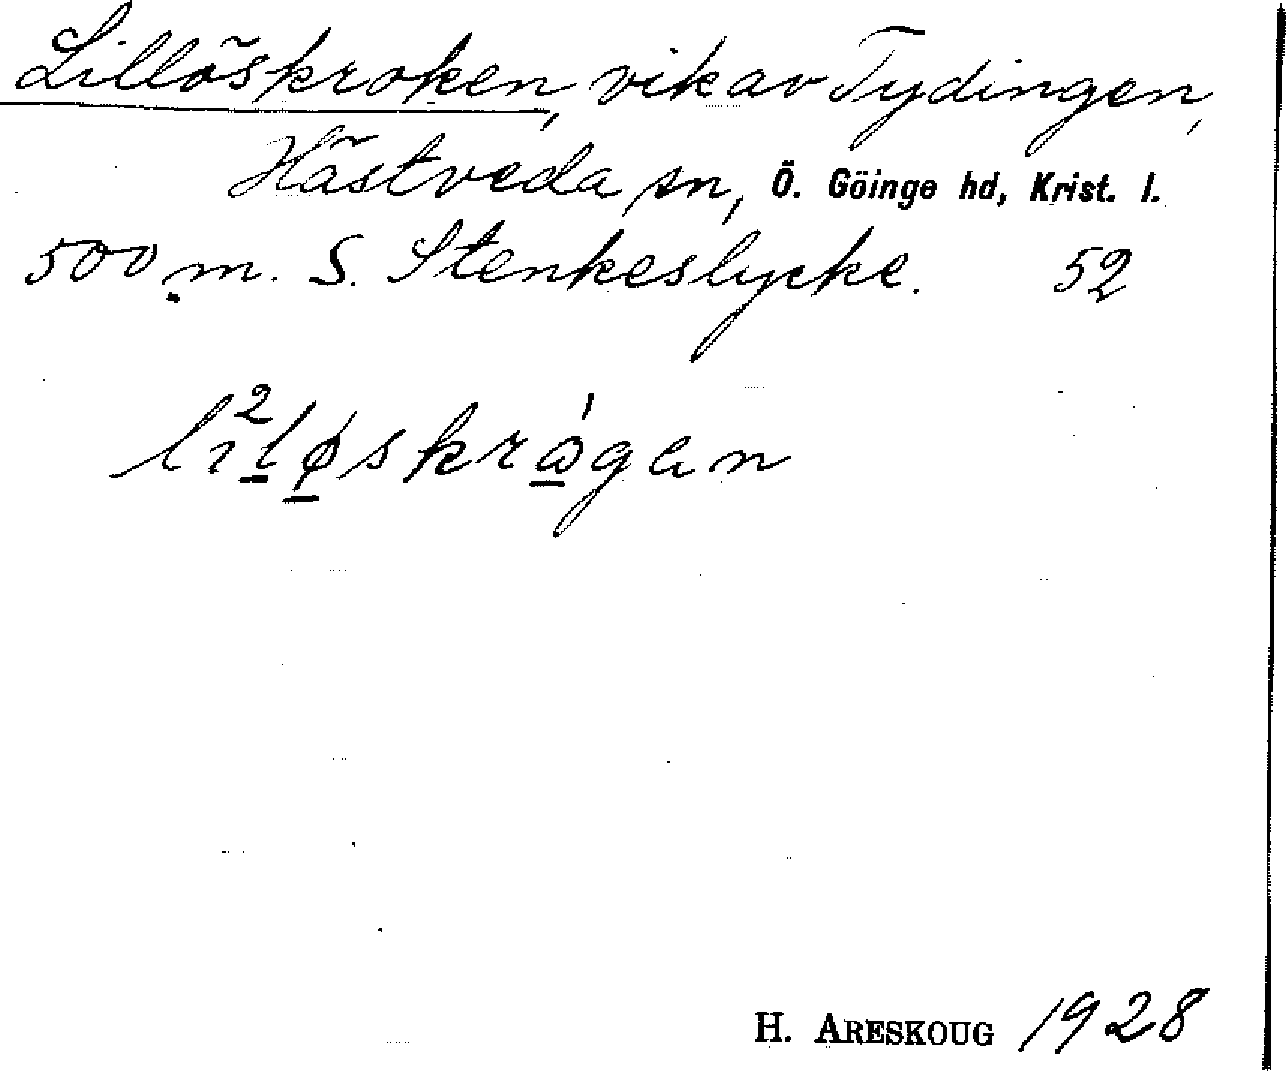 Lillöskroken, vik av Tydingen,
Hästveda sn, Ö. Göinge hd, Krist. l.
500 m. S. Stenkeslycke. 52
H. ARESKOUG 1928